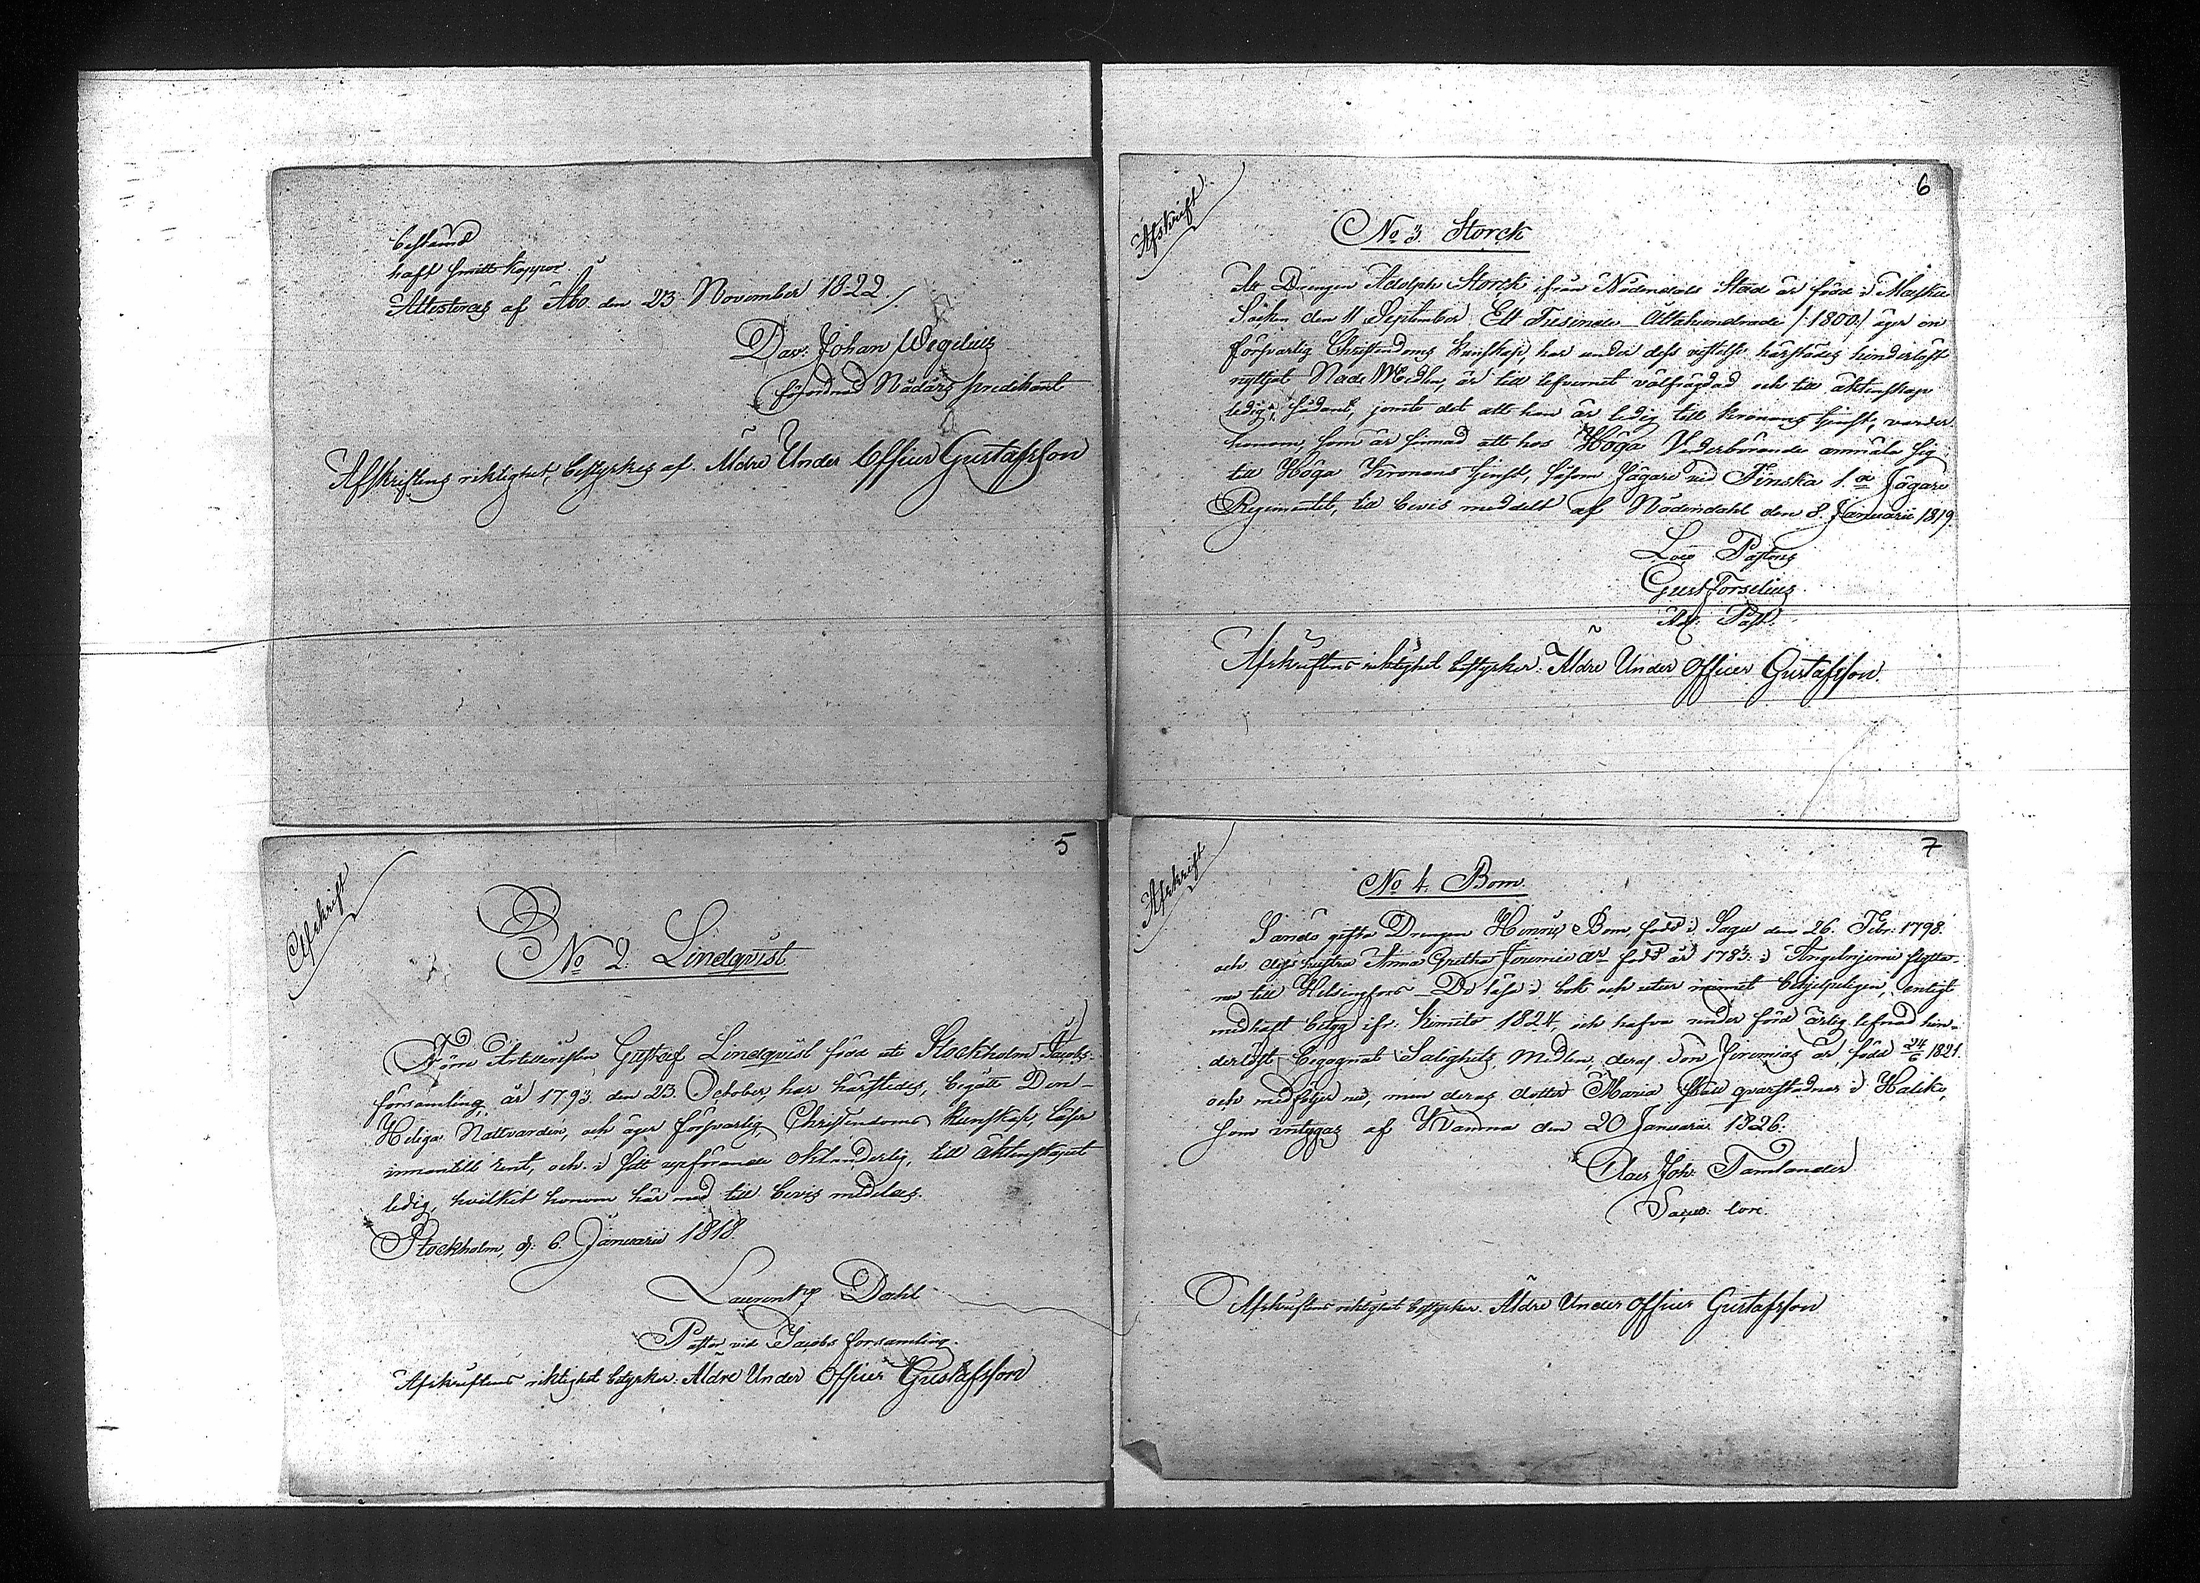 bestånd
haft Smitt koppor.
Attesteras af Åbo den 23 November 1822 /
Dav: Johan Wegelius
förordnad Nådårs predikant
Afskriftens riktighet, bestyrkes af Äldre Under Officer Gustafsson
5
Afskrift
No 2. Lindqvist
Förre Artilleristen Gustaf Lindqvist född uti Stockholm Jacobs
församling, år 1793 den 23 October, har härstedes, begått Den
Heliga Nattvarden, och äger försvarlig Christendoms kunskap, läser
innantill rent, och i sitt upförande oklanderlig, till äktenskapet
ledig, hvilket honom här med till bevis meddelas.
Stockholm, d: 6 Januarii 1818.
Laurent Dahl
Pastor vid Jacobs församling.
Afskriftens riktighet bestyrker: Äldre Under Officer Gustafsson
6
Afskrift
No 3. Storck
At Drengen Adolph Storck ifrån Nådendals Stad är född i Masku
Socken den 11 September Ett Tusende Åttahundrade /:1800:/ äger en
försvarlig Christendoms kunskap, har under dess vistelse härstädes hinderlöst
nyttjat Nåde Medlen, är till lefvernet välfrägdad och till äktenskap
ledig; sådant, jemte det att han är ledig till kronans tjenst, varder
honom, som är sinnad att hos Höga Vederbörande anmäla sig
till Höga Kronans tjenst, såsom Jägare vid Finska 1.a Jägare
Regimentet, till bevis meddelt af Nådendahl den 8. Januarii 1819.
Loco Pastoris
Gust Forselius
Adj: Past:
Afskriftens riktighet bestyrker: Äldre Under Officer Gustafsson.
7
Afskrift
No 4. Bom.
Sando gifta Drengen Henric Bom, född i Sagu den 26. Febr: 1798.
och dess hustru Anna Gretha Jeremiædr född år 1783. i Angelniemi flytta-
na till Helsingfors De läsa i bok och utur minnet behjelpeligen, enligt
medhaft betyg ifr: Kimito 1824, och hafva under förd ärlig lefnad hin-
derlöst begagnat Salighets Medlen deras Son Jeremias är född 24/6 1821.
och medföljer nu, men deras dotter Maria qvarstadnar i Haliko,
som intygas af Uvamna den 20 Januarii 1826.
Claes Joh: Tamlander
Sacell:
Afskriftens riktighet bestyrker. Äldre Under Officer Gustafsson